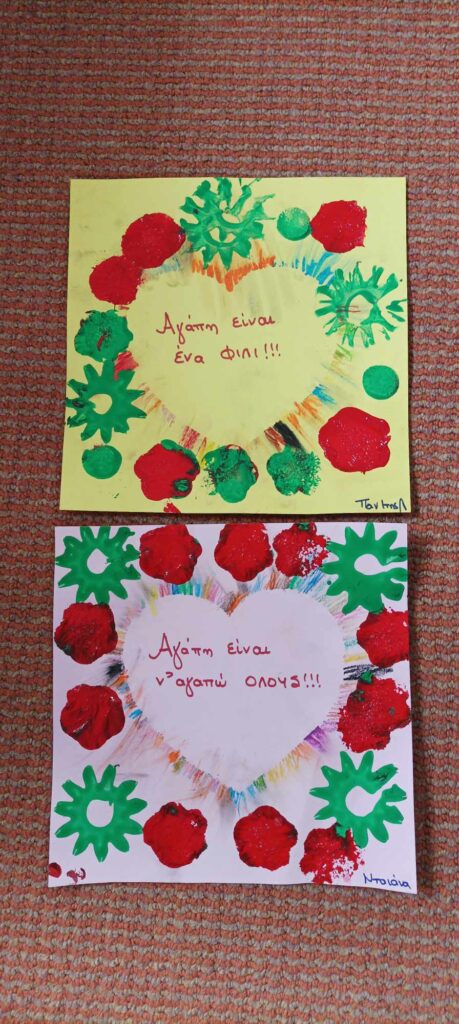 Αγάπη είναι
ένα ΦΙΛΙ!!!
Αγάπη είναι
ν' αγαπώ ΟΛΟΥΣ!!!
Νταιάνα